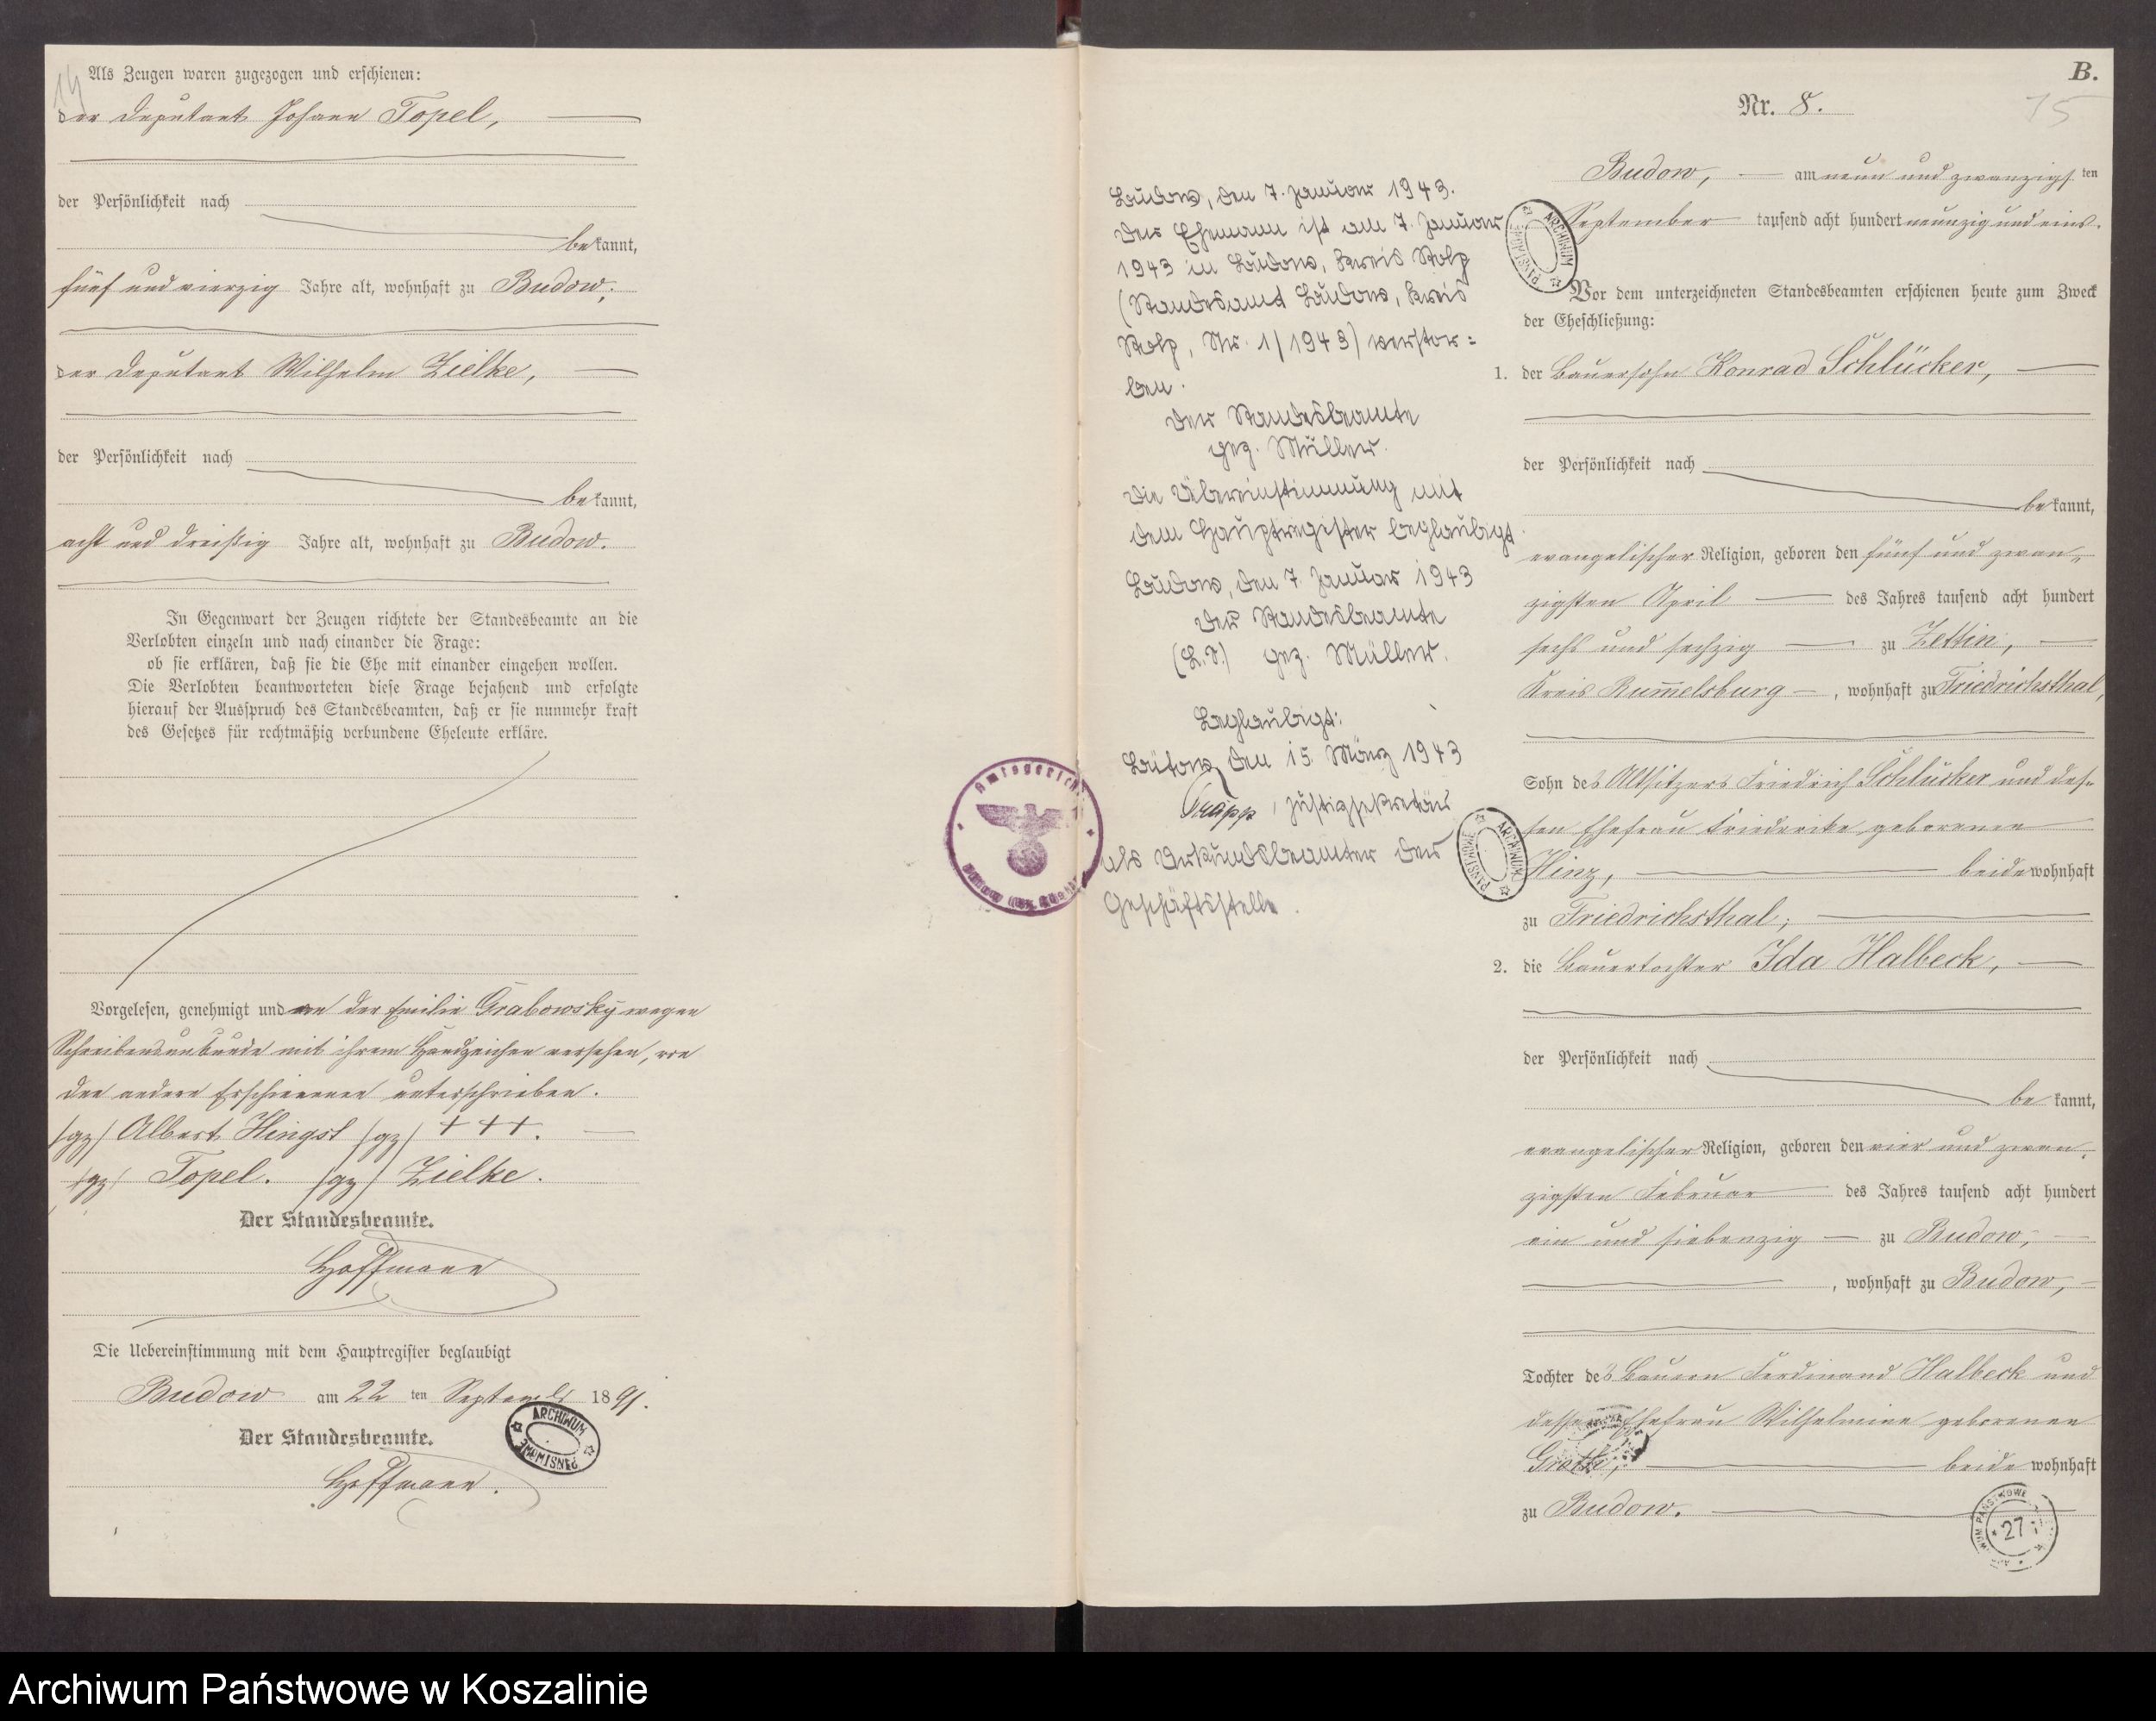 14
Als Zeugen waren zugezogen und erschienen:
der Deputant Johann Topel,
der Persönlichkeit nach
bekannt,
fünf und vierzig Jahre alt, wohnhaft zu Budow;
der Deputant Wilhelm Zielke,
der Persönlichkeit nach
bekannt,
acht und dreißig Jahre alt, wohnhaft zu Budow.
In Gegenwart der Zeugen richtete der Standesbeamte an die
Verlobten einzeln und nach einander die Frage:
ob sie erklären, daß sie die Ehe mit einander eingehen wollen.
Die Verlobten beantworteten diese Frage bejahend und erfolgte
hierauf der Ausspruch des Standesbeamten, daß er sie nunmehr kraft
des Gesetzes für rechtmäßig verbundene Eheleute erkläre.
Vorgelesen, genehmigt und von der Emilie Grabowsky wegen
Schreibensunkunde mit ihrem Handzeichen versehen, von
den andern Erschienenen unterschrieben.
(gz) Albert Hingst (gz) +++.
(gz) Topel. (gz) Zielke.
Der Standesbeamte.
Hoffmann
Die Uebereinstimmung mit dem Hauptregister beglaubigt
Budow am 22 ten September 1891.
Der Standesbeamte.
Hoffmann.
ARCHIWUM
PAŃSTWOWE
Amtsgericht
Budow, den 7. Januar 1943.
Der Ehemann ist am 7. Januar
1943 in Budow, Kreis Stolp
(Standesamt Budow, Kreis
Stolp, Nr. 1/1943) verstor=
ben.
Der Standesbeamte
gez. Müller.
Die Übereinstimmung mit
dem Hauptregister beglaubigt
Budow, den 7. Januar 1943
Der Standesbeamte
(L.S.) gez. Müller.
Beglaubigt:
Bütow, den 15. März 1943
Trapp, Justizsekretär
als Urkundsbeamter der
Geschäftsstelle.
B.
Nr. 8.
15
Budow, am neun und zwanzigs ten
September tausend acht hundert neunzig und eins.
ARCHIWUM
PAŃSTWOWE
Vor dem unterzeichneten Standesbeamten erschienen heute zum Zweck
der Eheschließung:
1. der Bauersohn Konrad Schlücker,
der Persönlichkeit nach
bekannt,
evangelischer Religion, geboren den fünf und zwan-
zigsten April des Jahres tausend acht hundert
sechs und sechzig zu Zettin,
Kreis Rummelsburg, wohnhaft zu Friedrichsthal,
Sohn des Altsitzers Friedrich Schlücker und des-
sen Ehefrau Friederike geborenen
Hinz, beide wohnhaft
zu Friedrichsthal;
ARCHIWUM
PAŃSTWOWE
2. die Bauertochter Ida Halbeck,
der Persönlichkeit nach
bekannt,
evangelischer Religion, geboren den vier und zwan-
zigsten Februar des Jahres tausend acht hundert
ein und siebenzig zu Budow,
, wohnhaft zu Budow,
Tochter des Bauern Ferdinand Halbeck und
dessen Ehefrau Wilhelmine geborenen
beide wohnhaft
zu Budow.
27
Archiwum Państwowe w Koszalinie